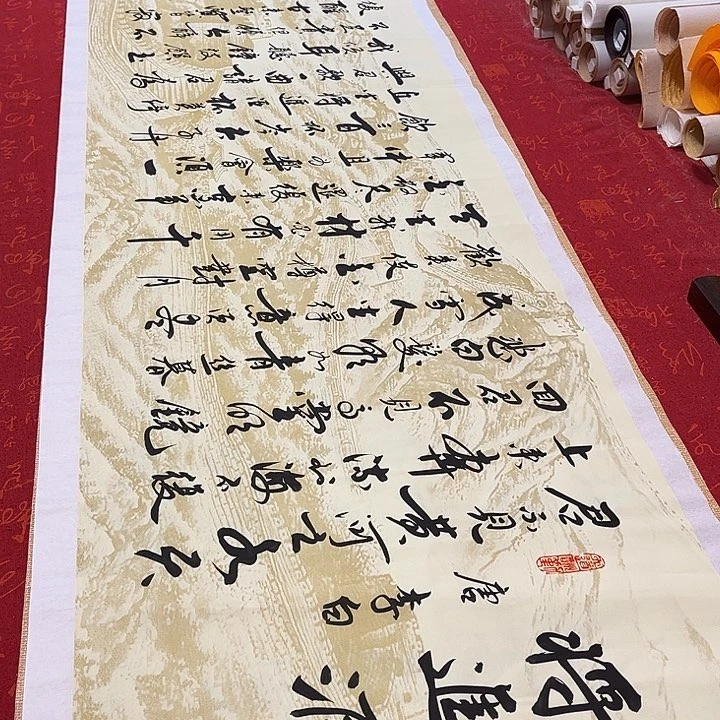 將進酒
唐 李白
君不見黃河之水天
上来奔流到海不復
回君不見高堂明鏡
悲白髮朝如青絲暮
成雪人生得意須盡
歡莫使金樽空對月
天生我材必有用千
金散盡還復来烹羊
宰牛且為樂會須一
飲三百杯岑夫子丹
丘生將進酒杯莫停
與君歌一曲請君為
我傾耳聽